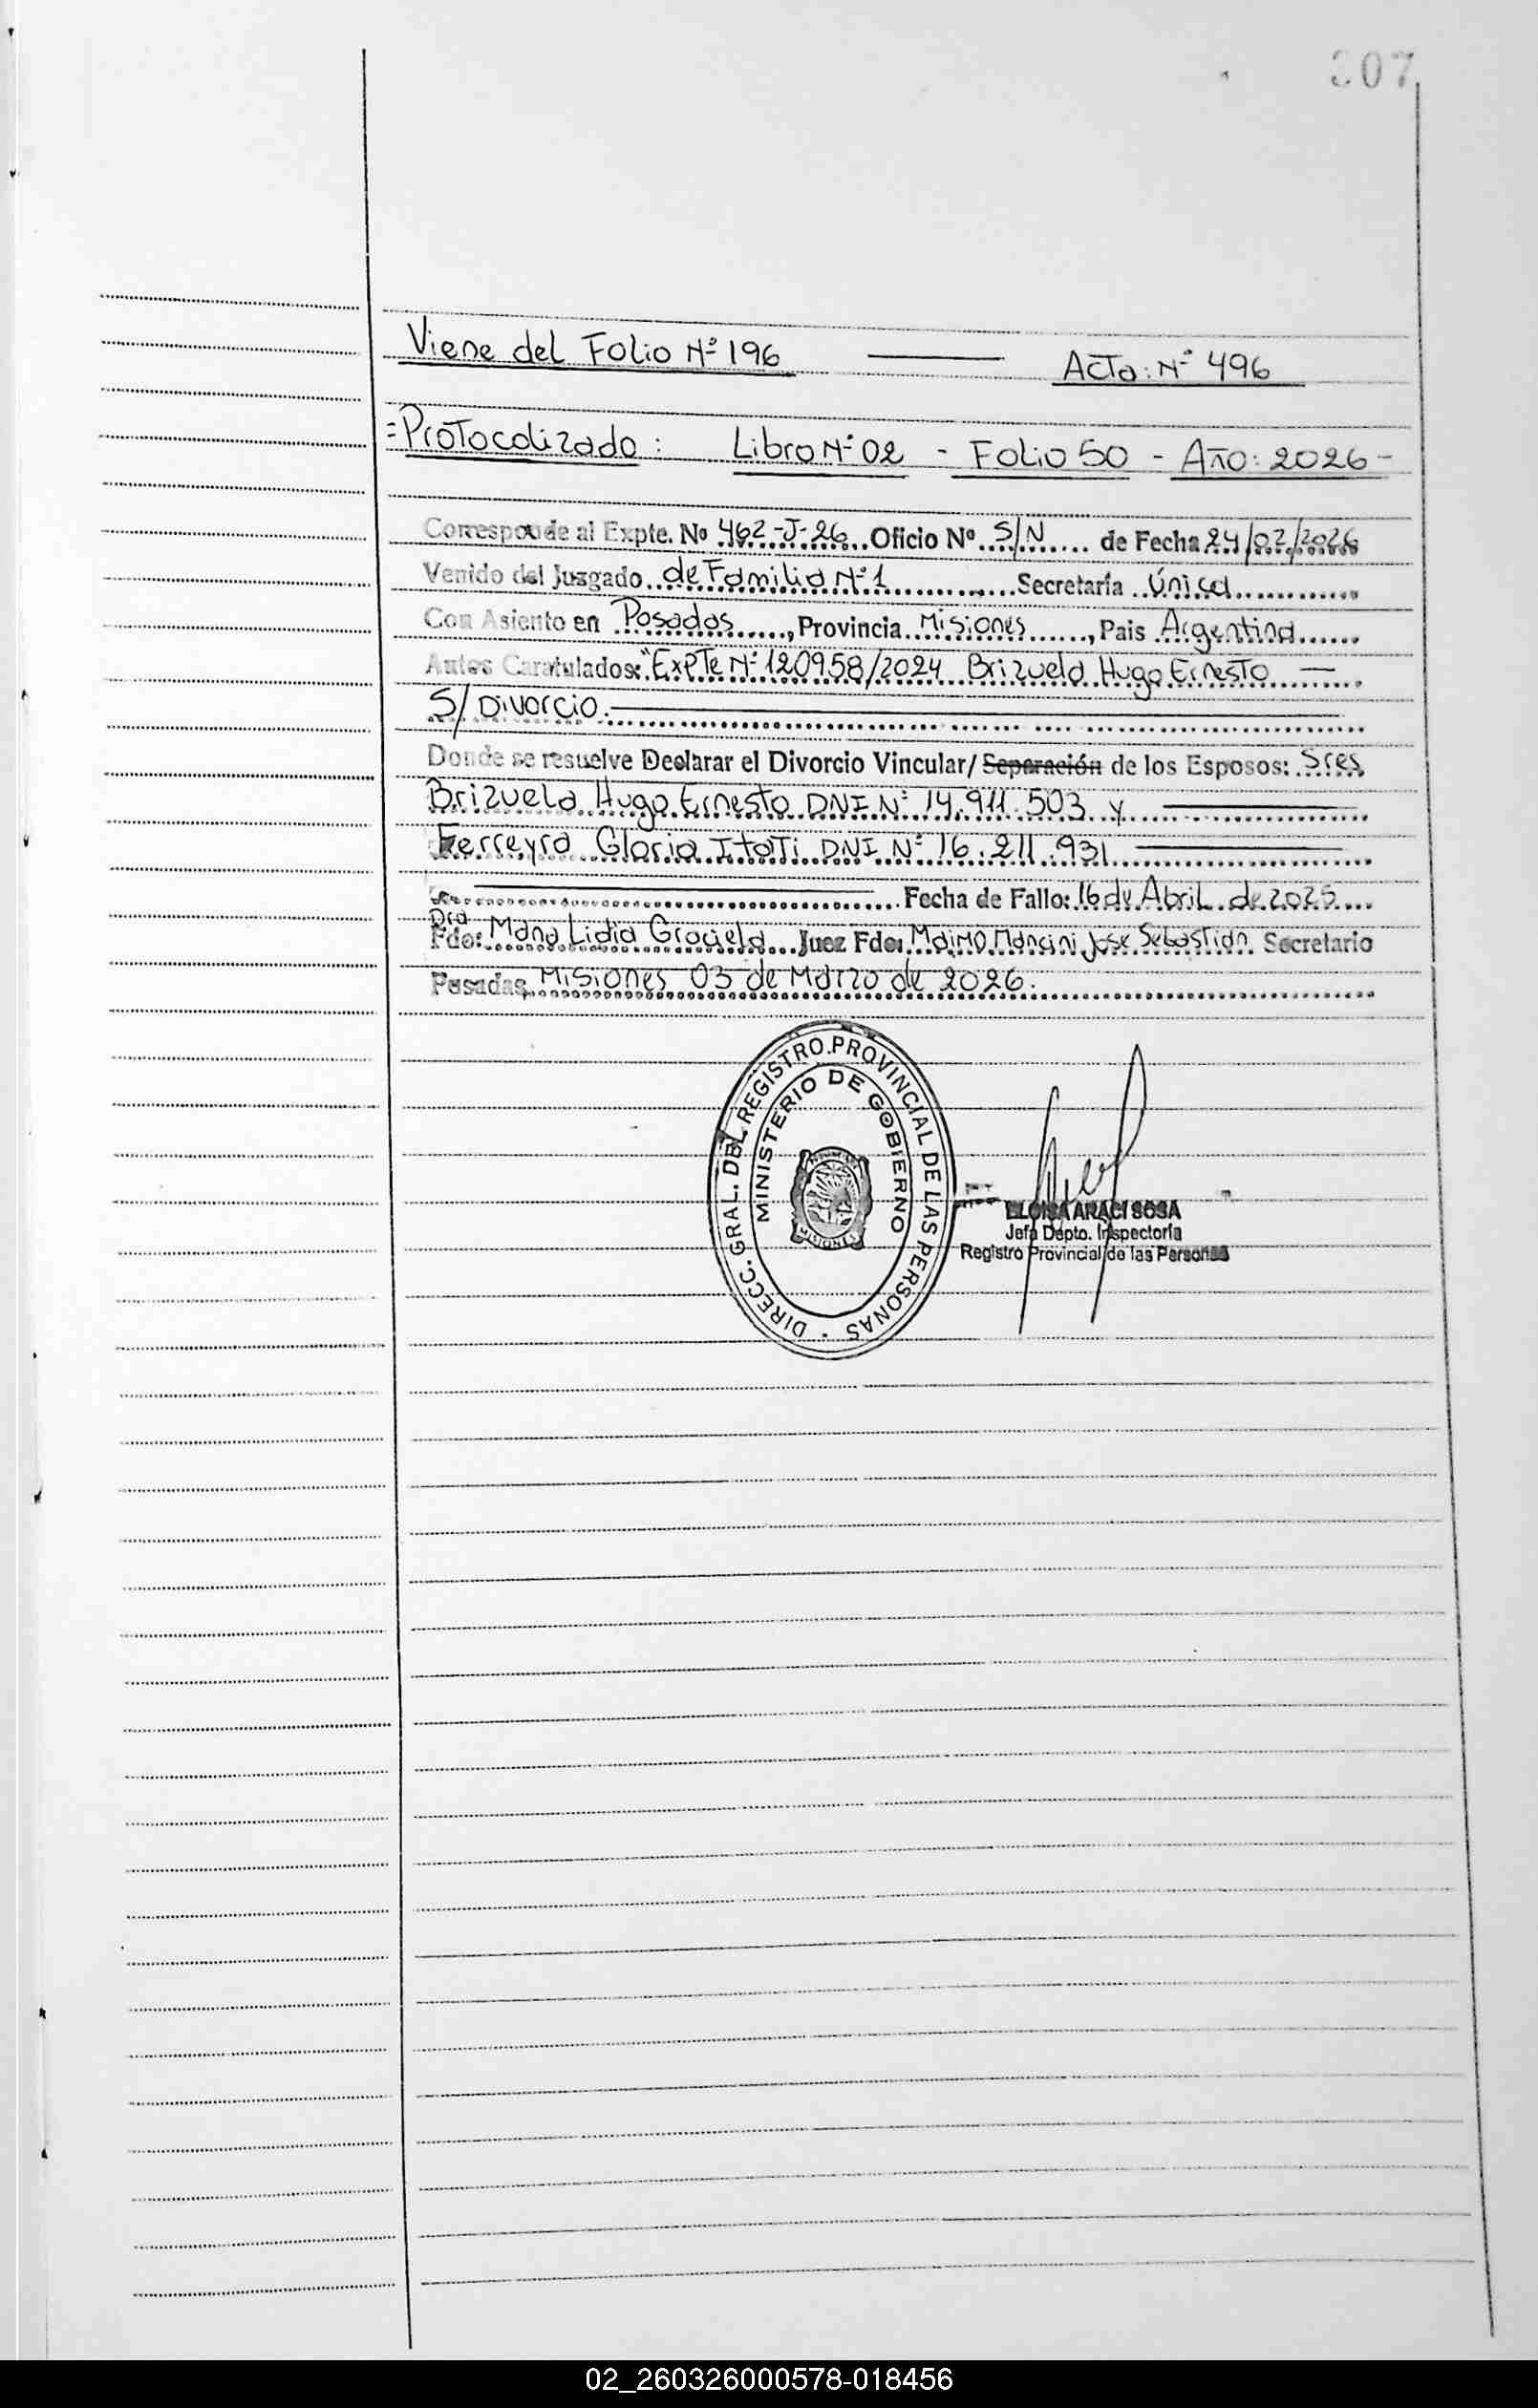 207
Viene del Folio Nº 196 Acta: Nº 496
=Protocolizado: Libro Nº 02 - Folio 50 - Año: 2026-
Corresponde al Expte. Nº 462-J-26 Oficio Nº S/N de Fecha 24/02/2026
Venido del Juzgado de Familia Nº 1 Secretaría Única
Con Asiento en Posadas, Provincia Misiones, Pais Argentina
Autos Caratulados: "ExpTe Nº 120958/2024 Brizuela Hugo Ernesto
S/ Divorcio.
Donde se resuelve Declarar el Divorcio Vincular/ Separación de los Esposos: Sres
Brizuela Hugo Ernesto DNI Nº 14.911.503 y
Ferreyra Gloria Itati DNI Nº 16.211.931
Fecha de Fallo: 16 de Abril de 2025
Dra
Fdo: Lidia Graciela Juez Fdo: Mancini Jose Sebastian Secretario
Posadas, Misiones 03 de Marzo de 2026.
DIRECC. GRAL. DEL REGISTRO PROVINCIAL DE LAS PERSONAS
MINISTERIO DE GOBIERNO
MISIONES
ELOISA ARACI SOSA
Jefa Depto. Inspectoría
Registro Provincial de las Personas
02_260326000578-018456